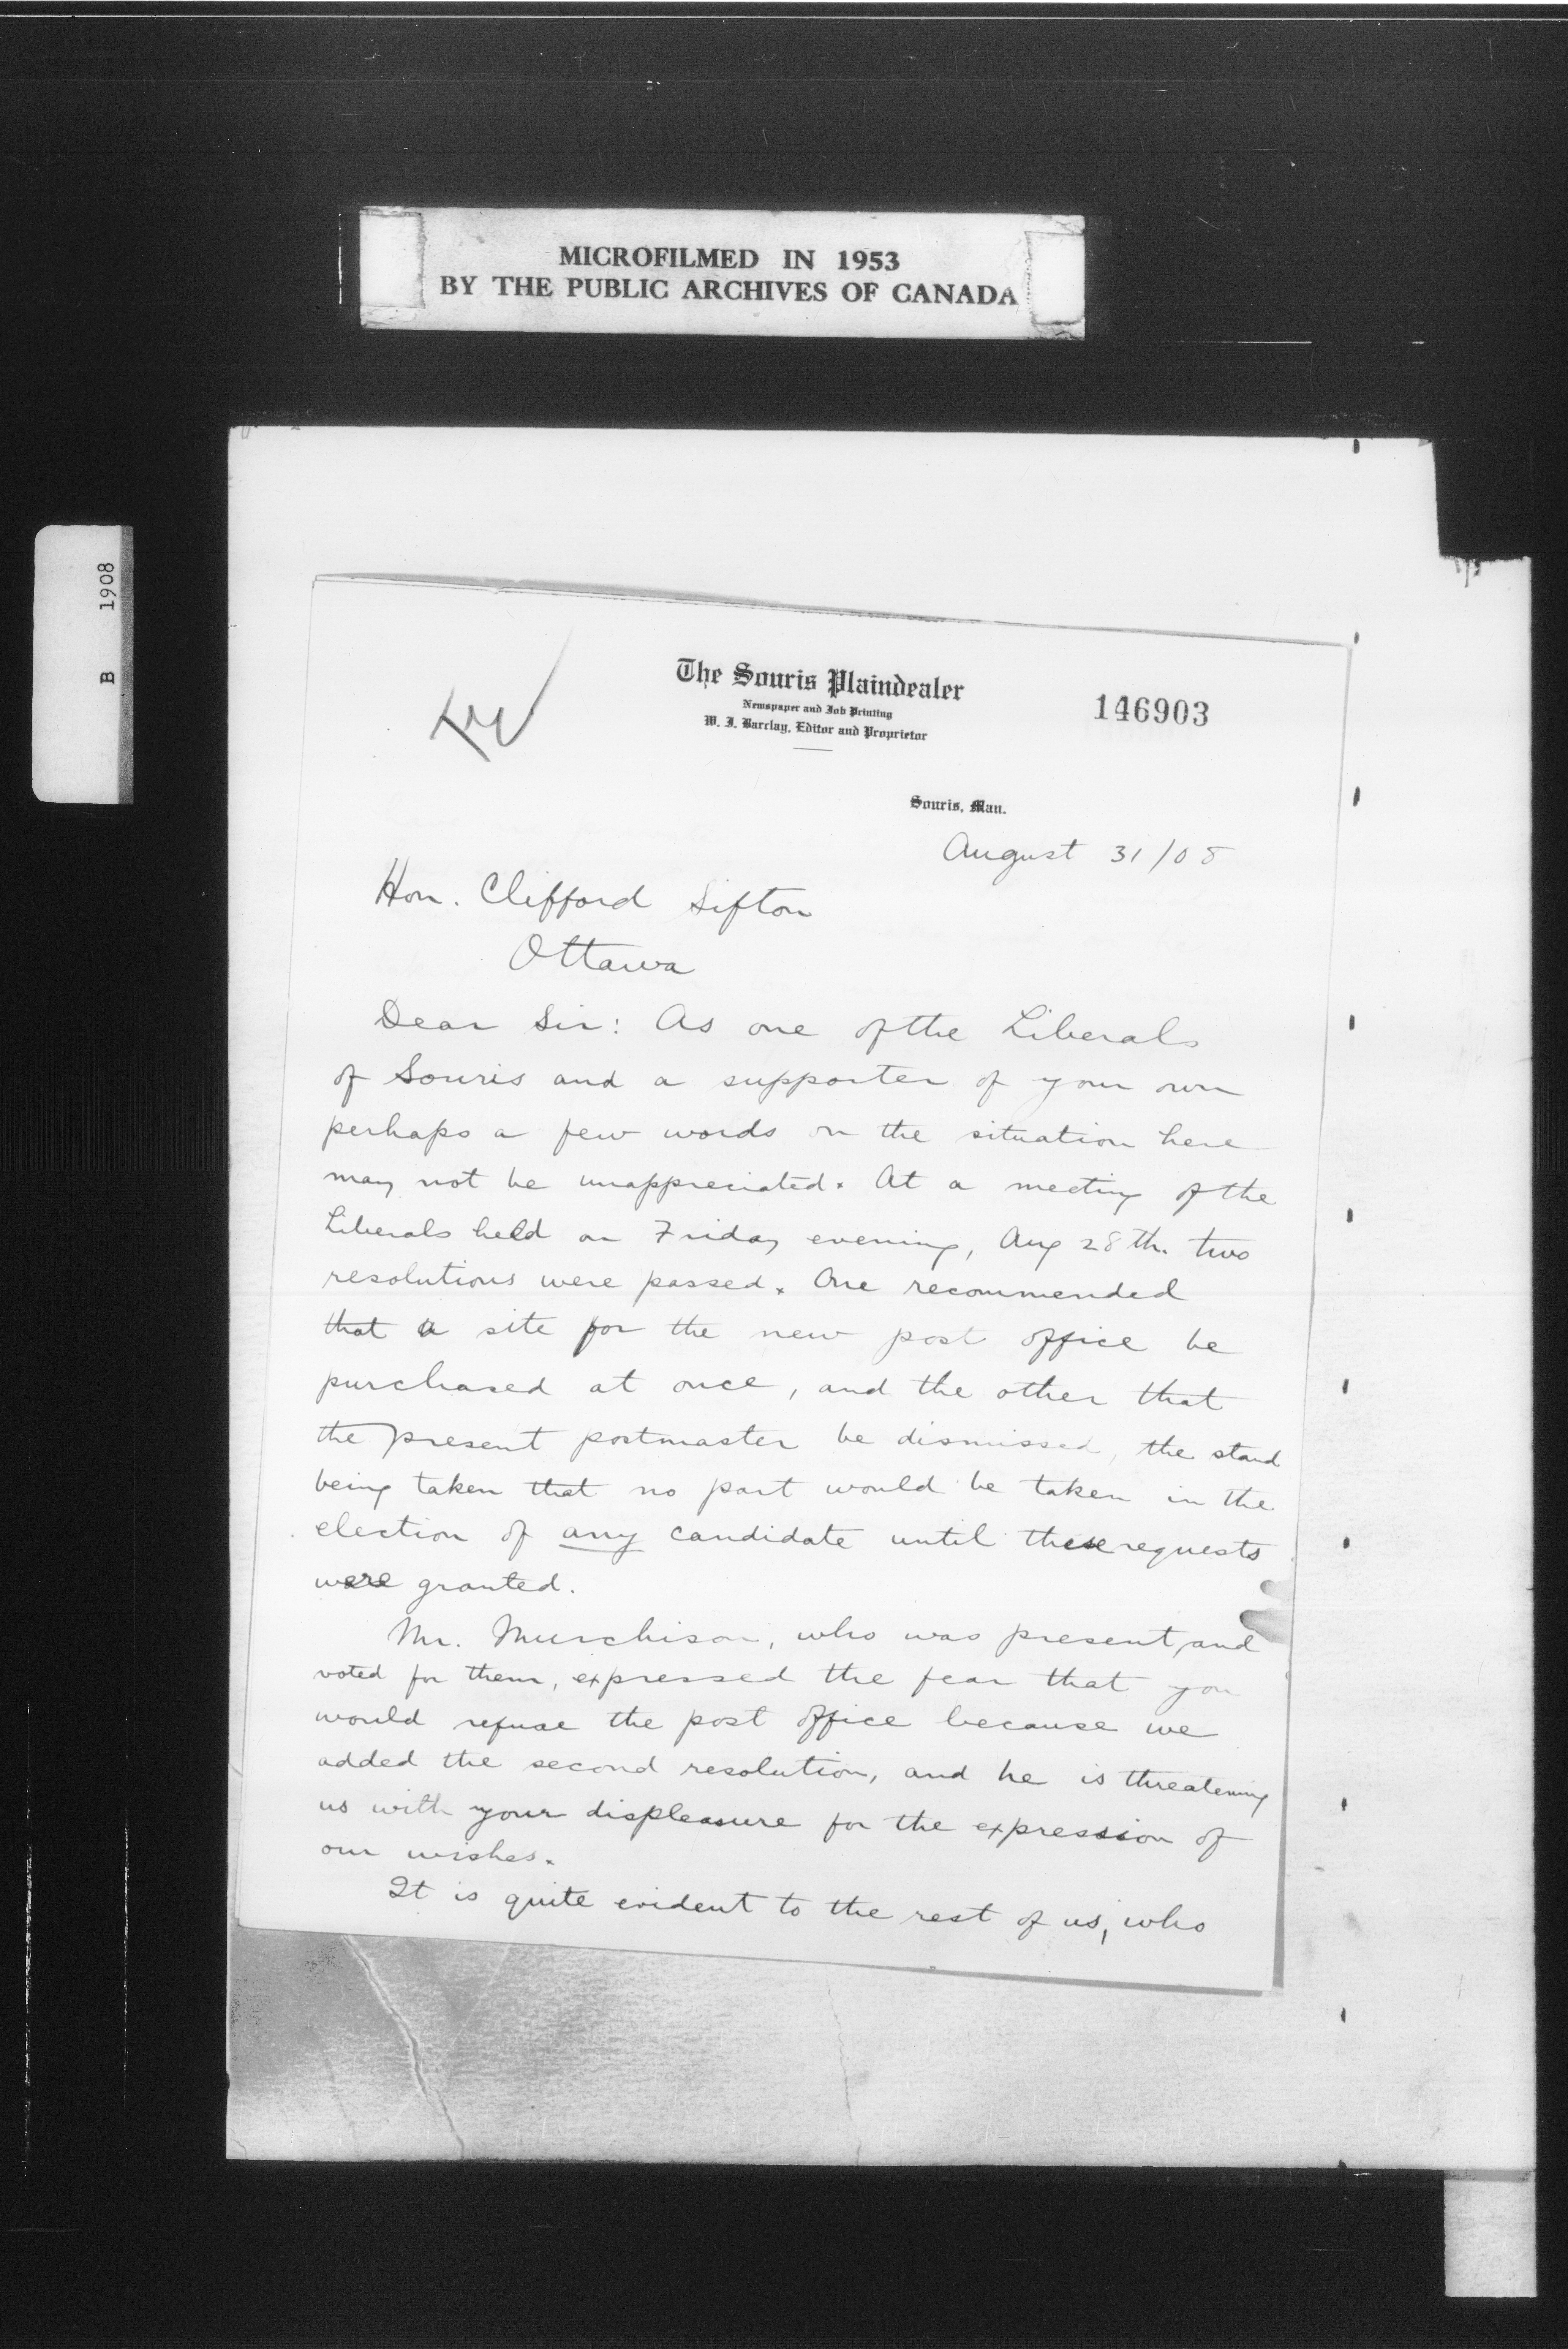 MICROFILMED IN 1953
BY THE PUBLIC ARCHIVES OF CANADA
B 1908
The Souris Plaindealer
Newspaper and Job Printing
W. J. Barclay, Editor and Proprietor
146903
Souris, Man.
August 31/08
Hon. Clifford Sifton
Ottawa
Dear Sir: As one of the Liberals
of Souris and a supporter of your own
perhaps a few words on the situation here
may not be unappreciated. At a meeting of the
Liberals held on Friday evening, Aug 28th. two
resolutions were passed. One recommended
that a site for the new post office be
purchased at once, and the other that
the present postmaster be dismissed, the stand
being taken that no part would be taken in the
election of any candidate until these requests
were granted.
Mr. Murchison, who was present, and
voted for them, expressed the fear that you
would refuse the post office because we
added the second resolution, and he is threatening
us with your displeasure for the expression of
our wishes.
It is quite evident to the rest of us, who